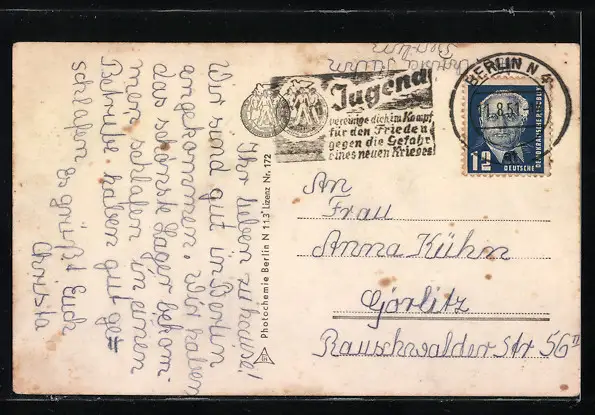 Ihr lieben zu hause!
Wir sind gut in Berlin
angekommen. Wir haben
das schönste Lager bekom-
men schlafen in einen
Betriebe haben gut ge=
schlafen es grüßt Euch
Christa
Photochemie Berlin N 113 Lizenz Nr. 172
Jugend
vereinige dich im Kampf
für den Frieden
gegen die Gefahr
eines neuen Krieges
BERLIN N 4
1.8.51
12
DEUTSCHE
DEMOKRATISCHE REPUBLIK
An
Frau
Anna Kühn
Görlitz
Rauschwalder Str 56 II